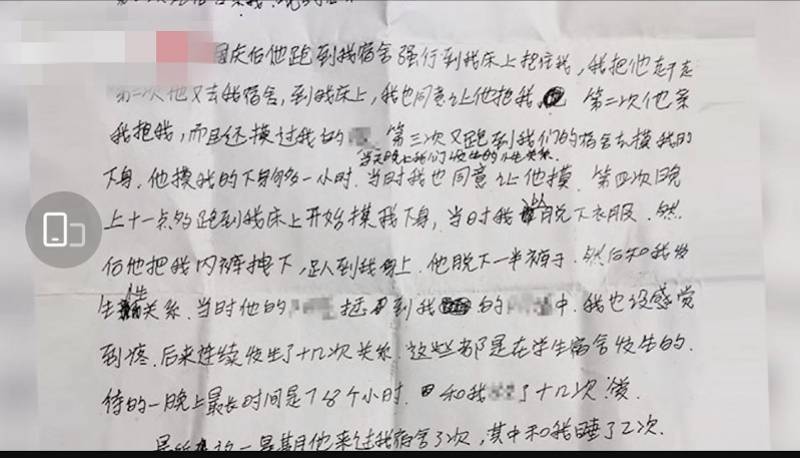 国庆后他跑到我宿舍强行到我床上抱住我,我把他赶走
第二次他又去我宿舍,到我床上,我也同意让他抱我 第二次他来
我抱我,而且还摸过我的 第三次又跑到我们的宿舍去摸我的
当天晚上我们发生的性关系.
下身.他摸我的下身多一小时.当时我也同意让他摸.第四次晚
上十一点多跑到我床上开始摸我下身,当时我 脱下衣服.然
后他把我内裤拽下,趴到我身上.他脱下一半裤子.然后和我发
生性关系.当时他的 到我 的 中.我也没感觉
到疼.后来连续发生了十几次关系.这些都是在学生宿舍发生的.
待的一晚上最长时间是7 8个小时. 和我 了十几次
一星期他来过我宿舍3次,其中和我睡了2次.